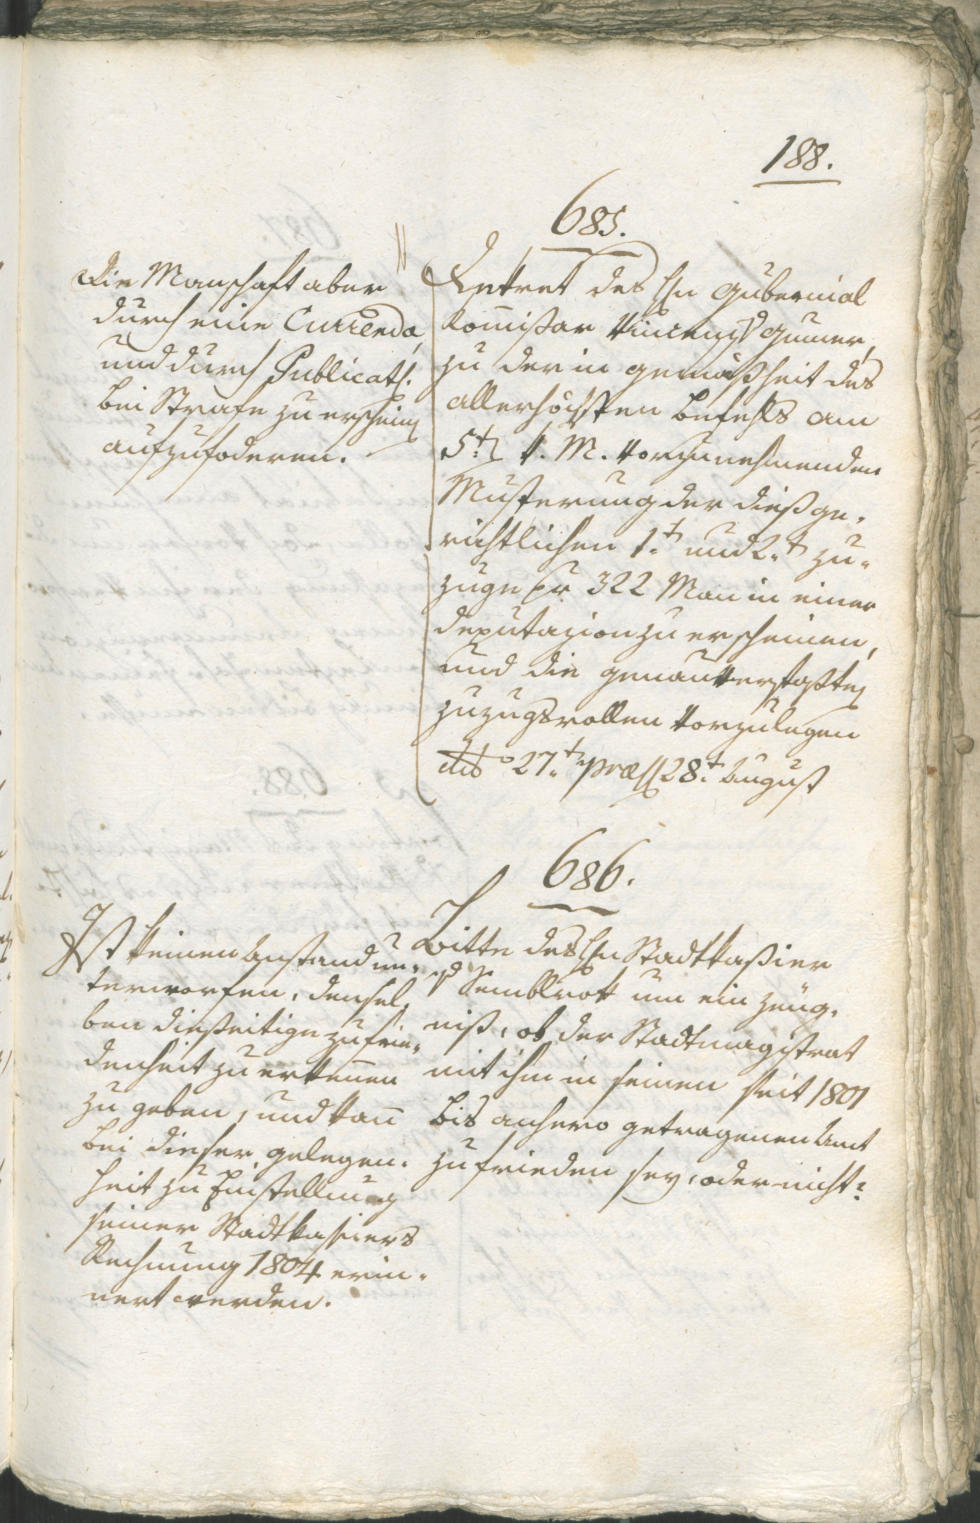 188.
685.
Die Manschaft aber
durch eine Currenda,
und durch Publicat:
bei Strafe zu erscheinen
aufzufoderen.
Dektret des Hn Gubernial
Kom̄issar Vincenz v Gumer,
zu der in gemäßheit des
allerhöchsten befehls am
5t. k. M. vorzunehmenden
Musterung der dießge-
richtlichen 1.t und 2.t zu-
züge pr 322 Man in einer
deputazion zu erscheinen,
und die genau verfaßten
zuzugsrollen vorzulegen
dto 27.t præs 28.t August
686.
Ist keinen Anstand un-
terworfen, densel-
ben dießeitige zufrie-
denheit zu erkennen
zu geben, und kan̄
bei dieser gelegen-
heit zu Einstellung
seiner Stadtkassiers
Rechnung 1804 erin-
nert werden.
Bitte des Hn Stadtkaßier
v Semblrok um ein zeüg-
niß, ob der Stadtmagistrat
mit ihm in seinen seit 1801
bis anhero getragenen Amt
zufrieden sey, oder nicht: